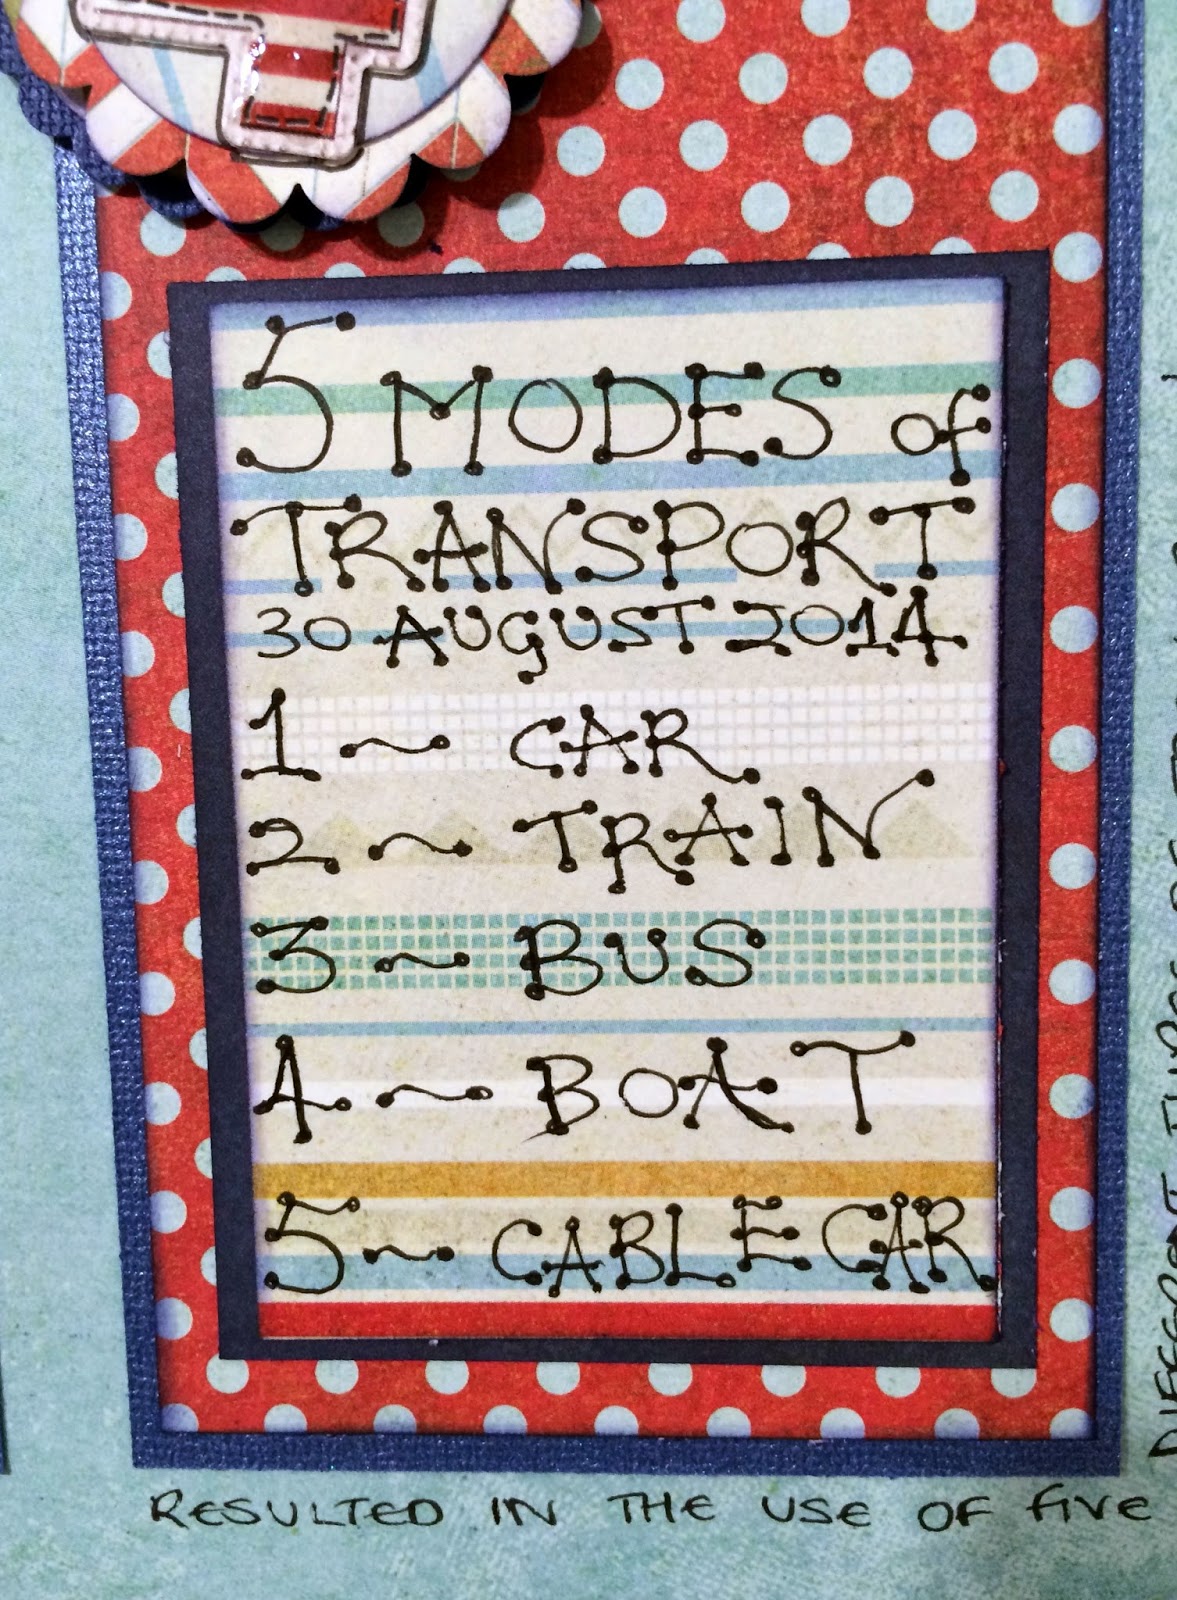 5 MODES of
TRANSPORT
30 AUGUST 2014
1 ~ CAR
2 ~ TRAIN
3 ~ BUS
4 ~ BOAT
5 ~ CABLE CAR
RESULTED IN THE USE OF FIVE
DIFFERENT TYPES OF